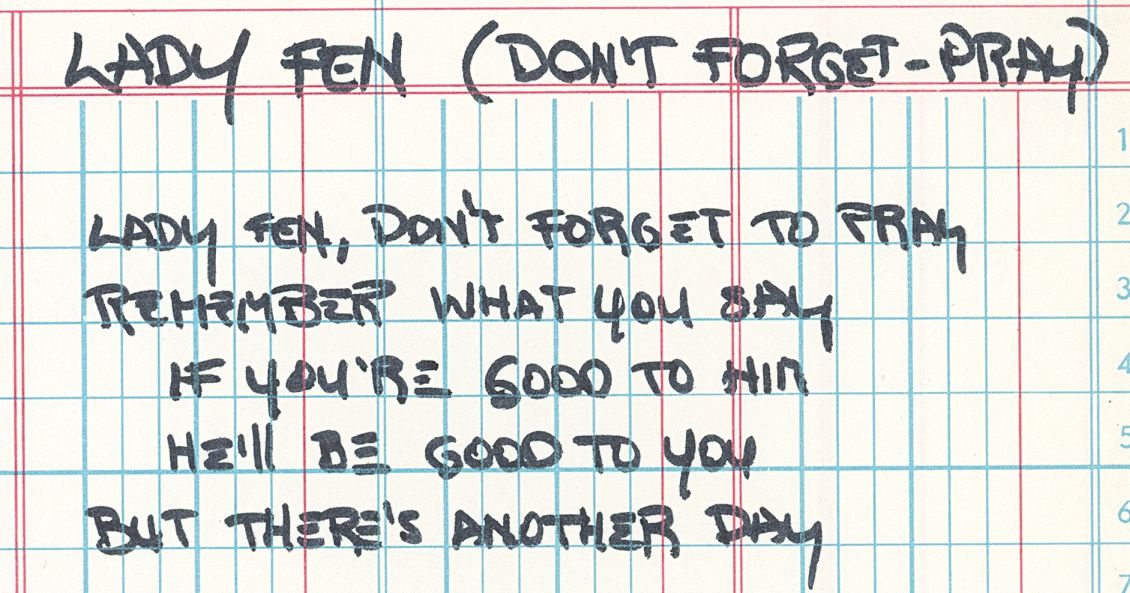 LADY FEN (DON'T FORGET-PRAY)
1
LADY FEN, DON'T FORGET TO PRAY 2
REMEMBER WHAT YOU SAY 3
IF YOU'RE GOOD TO HIM 4
HE'll BE GOOD TO YOU 5
BUT THERE'S ANOTHER DAY 6
7